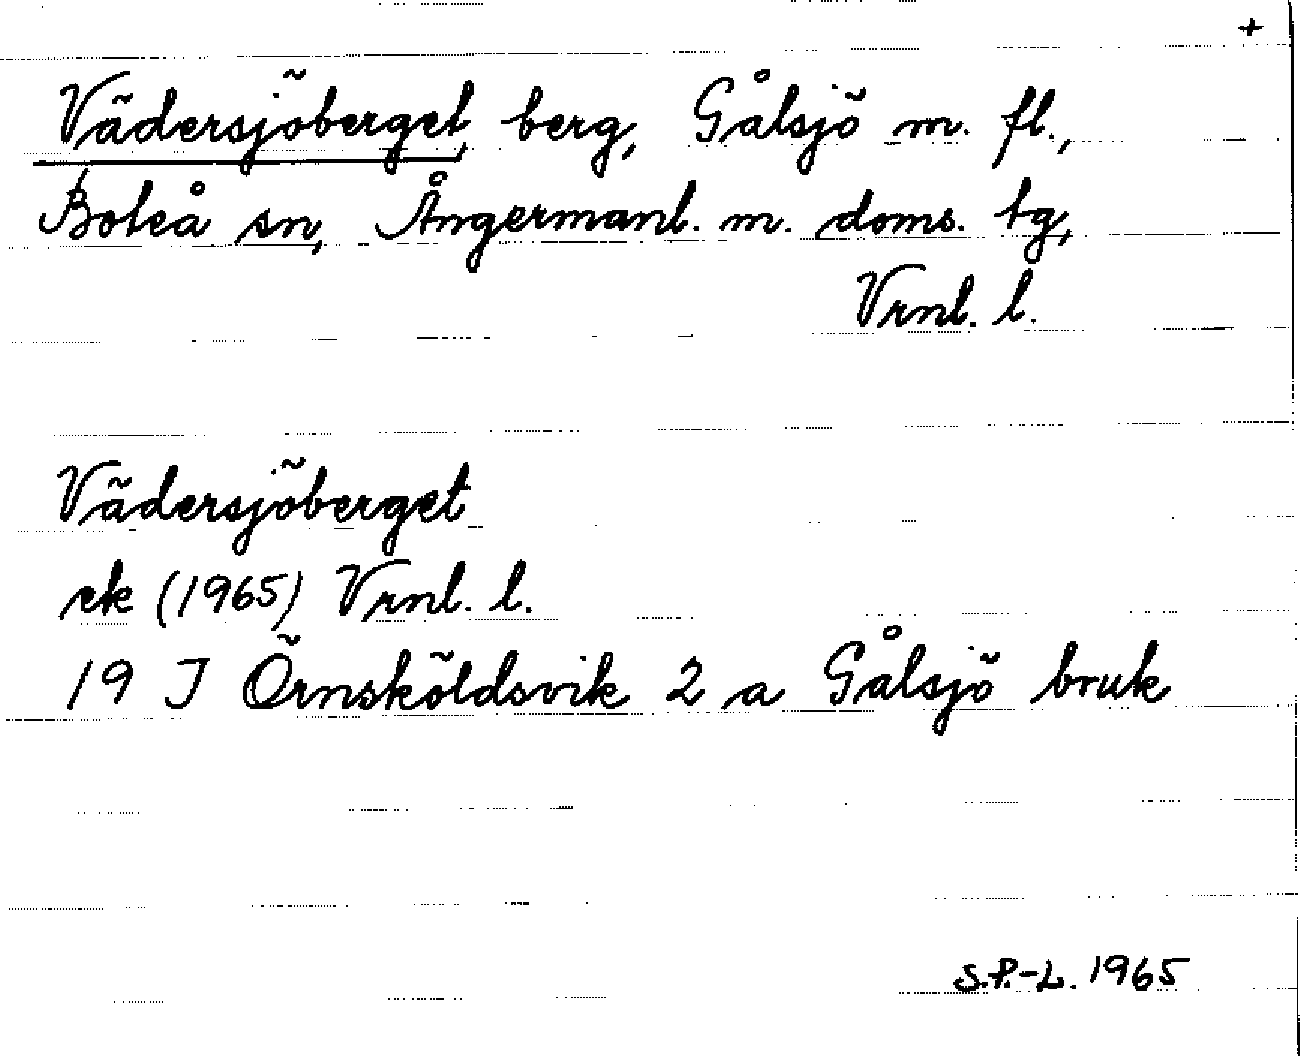 +
Vädersjöberget, berg, Gålsjö m. fl.,
Boteå sn, Ångermanl. m. doms. tg,
Vrnl. l.
Vädersjöberget
ek (1965) Vrnl. l.
19 I Örnsköldsvik 2 a Gålsjö bruk
S.P.-L. 1965